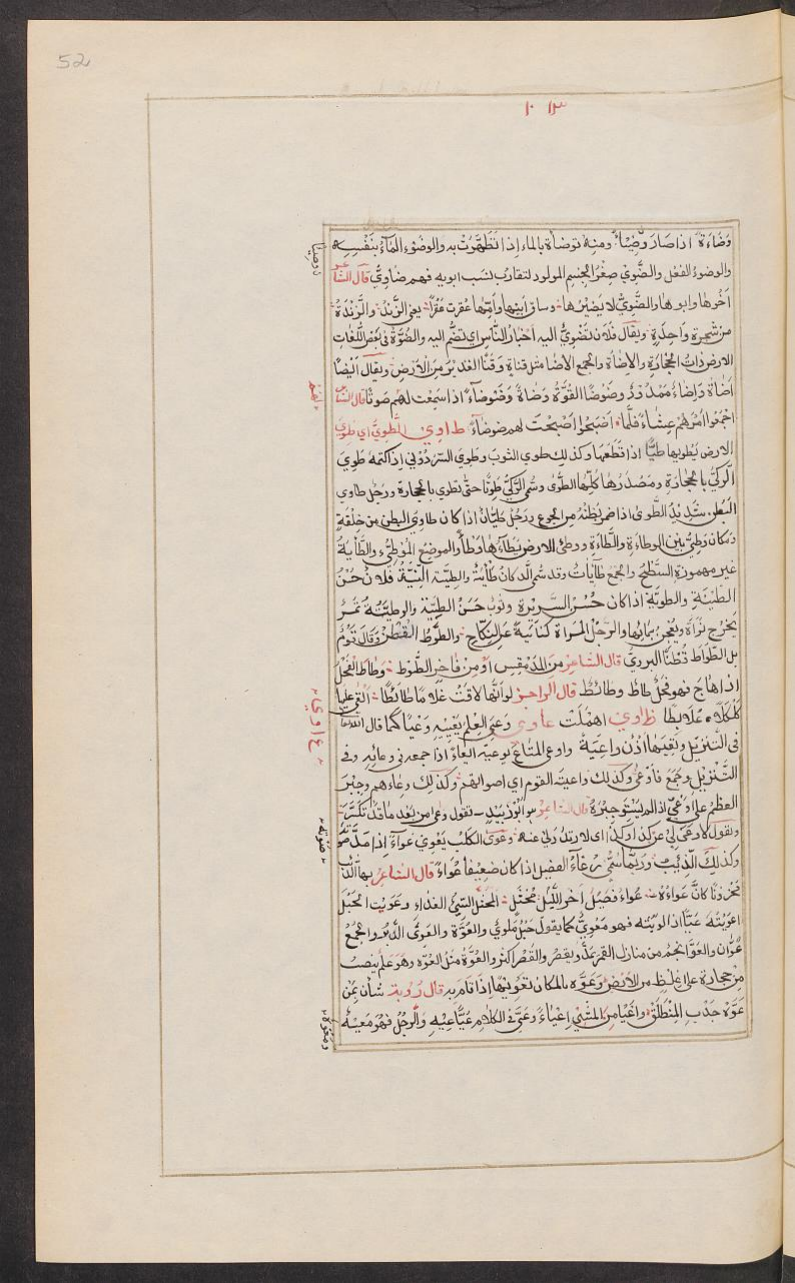 52
١٠٣
وَضَاءَةً اذا صَارَ وَضِيْاً ومنه توضأة بالماء إذا تَطَهَّرْتْ به والوضوء المآء بنَفْسِه
والوضوء الفعْل والضَّوِيْ صِغرُ الجِسْم المولود لتقارب نسَب ابويه فهو ضاوِيٌّ قال الشاعر
اخُوها وابوها والضَّوِيُّ لا يضيْرُها وساق ابيها وامّها عُقِرت عَقْراً يعني الزَّنْد والزَّنْدَةُ
من شجرة واحِدةٍ ويقال فلان تَضْوِيْ اليه اخبارُ النَّاس اي تضُم اليه والضُوَّة في بعض اللُّغات
الارض ذات الحجارة والاضاة والجمع الاضا مثل قناة وقَنًا الغدِيْر من الأَرضِ ويقال ايضاً
اضَاة واِضاءٌ ممْدُودٌ وضُوضًا القُوَّةُ وَضَاةٌ وضَوضاءٌ اذا سَمِعت لهم صوتًا قال الشاعر
اجْمَعُوا امْرهُمْ عِشاءً فلَّما اصْبَحُوا اصْبَحَتْ لهم ضوضاءُ طاوي الطَّوِيُّ اي طوي
الارض يَطْوِيها طيًّا اذا قَطَعَها وكذلك طوي الثوبَ وطوي السّر دُوْني اذا كتمهُ طُوِيَ
الرَّكيُّ بالحجارة ومَصْدرُها كُلّها الطَّوى وسُمي الرَّكيُّ طوِيًّا حتى تطوي بالحجارة ورَجل طاوي
البَطْن شدِيْدُ الطَّوى اذا ضمر بَطنُهُ من الجوع ورَجُل طيَّانُ اذا كان طاوي البطن من خِلْقَةٍ
ومكان وطِيٌّ بيّن الوطاءَةِ والطَّاءَة ووطئ الارض يَطَآءُها وَطأً والموضع المَوْطِيْءُ والطَّايةُ
غير مهموزة السَّطْحُ والجمع طآيات وقد سُمّي الدكان طآيةً والطِيَّة النِيَّةُ فلان حُسْنُ
الطيَّةِ والطويَّة اذا كان حُسْن السَّرِيْرة وثوب حَسَنُ الطِيَّة
يَخرُج نواة ويُعجن والرّجُل المراةَ كنايةً عن النِّكاح والطُّوطُ القُطْنُ وقال قوْمٌ
بل الطُواط قُطْنُ البَرْديّ قال الشاعر من المدَمْقِس او من فاخر الطُّوط وطاط الفَحْل
اذا هاج فهو فحْلٌ طاط وطائط قال الراجز لو انَّها لاقَتْ غُلاما طائِطًا القى عليها
كَلْكلاً عُلابِطا ظاوي اهْملَتْ عاوي وعَي العِلْمَ يَعِيْهِ وَعْيًا كما قال الله تعالى
في التَّنْزيل وتَعِيَها اُذُن واعِيَة واوعى المتاع يُوعِيه ايعاءً اذا جمعه في وعائِه وفي
التَّنْزيل وجَمَعَ فاوْعى وكذلك واعية القوم اي اصواتهم وكذلك وعاءهم وجبْر
العظْم على وَعْيٍ اذا لم يَسْتَوِ جبْرُهُ قال الشاعر هو ابُو زُبَيْدٍ تقول وعَا من بَعْد ما قد تكسَّر
وتقول لا وَعْي لي عن كذا وكذا اي لا بدّ لي عنه وعَوَى الكَلْب يَعْوِي عُواءً إذا مدَّ صوته
وكذلك الذِّئب ورُبّما سُمّي رغاءُ الفصيْل اذا كان ضعيفًا عُواءً قال الشاعر بها الذئب
مَحْزونًا كانَّ عواءَهُ عُواءُ فصيْلٍ آخِر اللَّيل مُحْثَلِ المُحْثَل السَّيّءُ الغذاء وعَوَيْت الحَبْل
اعوِيْتُهُ عَيًّا اذا لويْته فهو مَعْوِيٌّ كما يقول حَبْلٌ ملْوِيٌّ والعَوَّة والعَوَّى الدُّبُر والجمْعُ
عُوَّان والعَوَّا نجمٌ من منازل القمر يمَدُّ ويقصر والقصْر اكثر والعُوَّةُ مثل الصُّوَّه وهو علمٌ ينصَب
مِنْ حجارة على غِلَظٍ من الأرْض وعَوَّه بالمكان تعْوِيْهًا إذا قام به قال رُوبة شَأز بِمَن
عَوَّه جَدْبِ المُنْطَلَقْ واعْيَا من المشْي اعْياءً وعَيَّ في الكلام عَيًّا عِيْهِ والرجُلُ فهو مَعْيِهٌ
عاوي
صوته